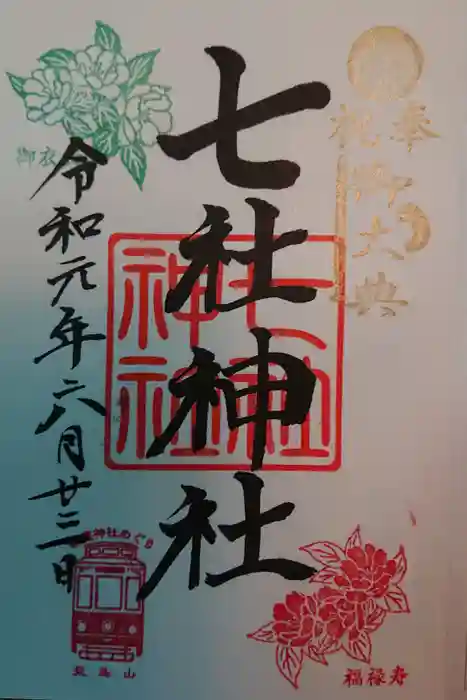 奉祝
御大典
七社神社
七社
神社
令和元年六月廿三日
御衣
神社めぐり
飛鳥山
福禄寿